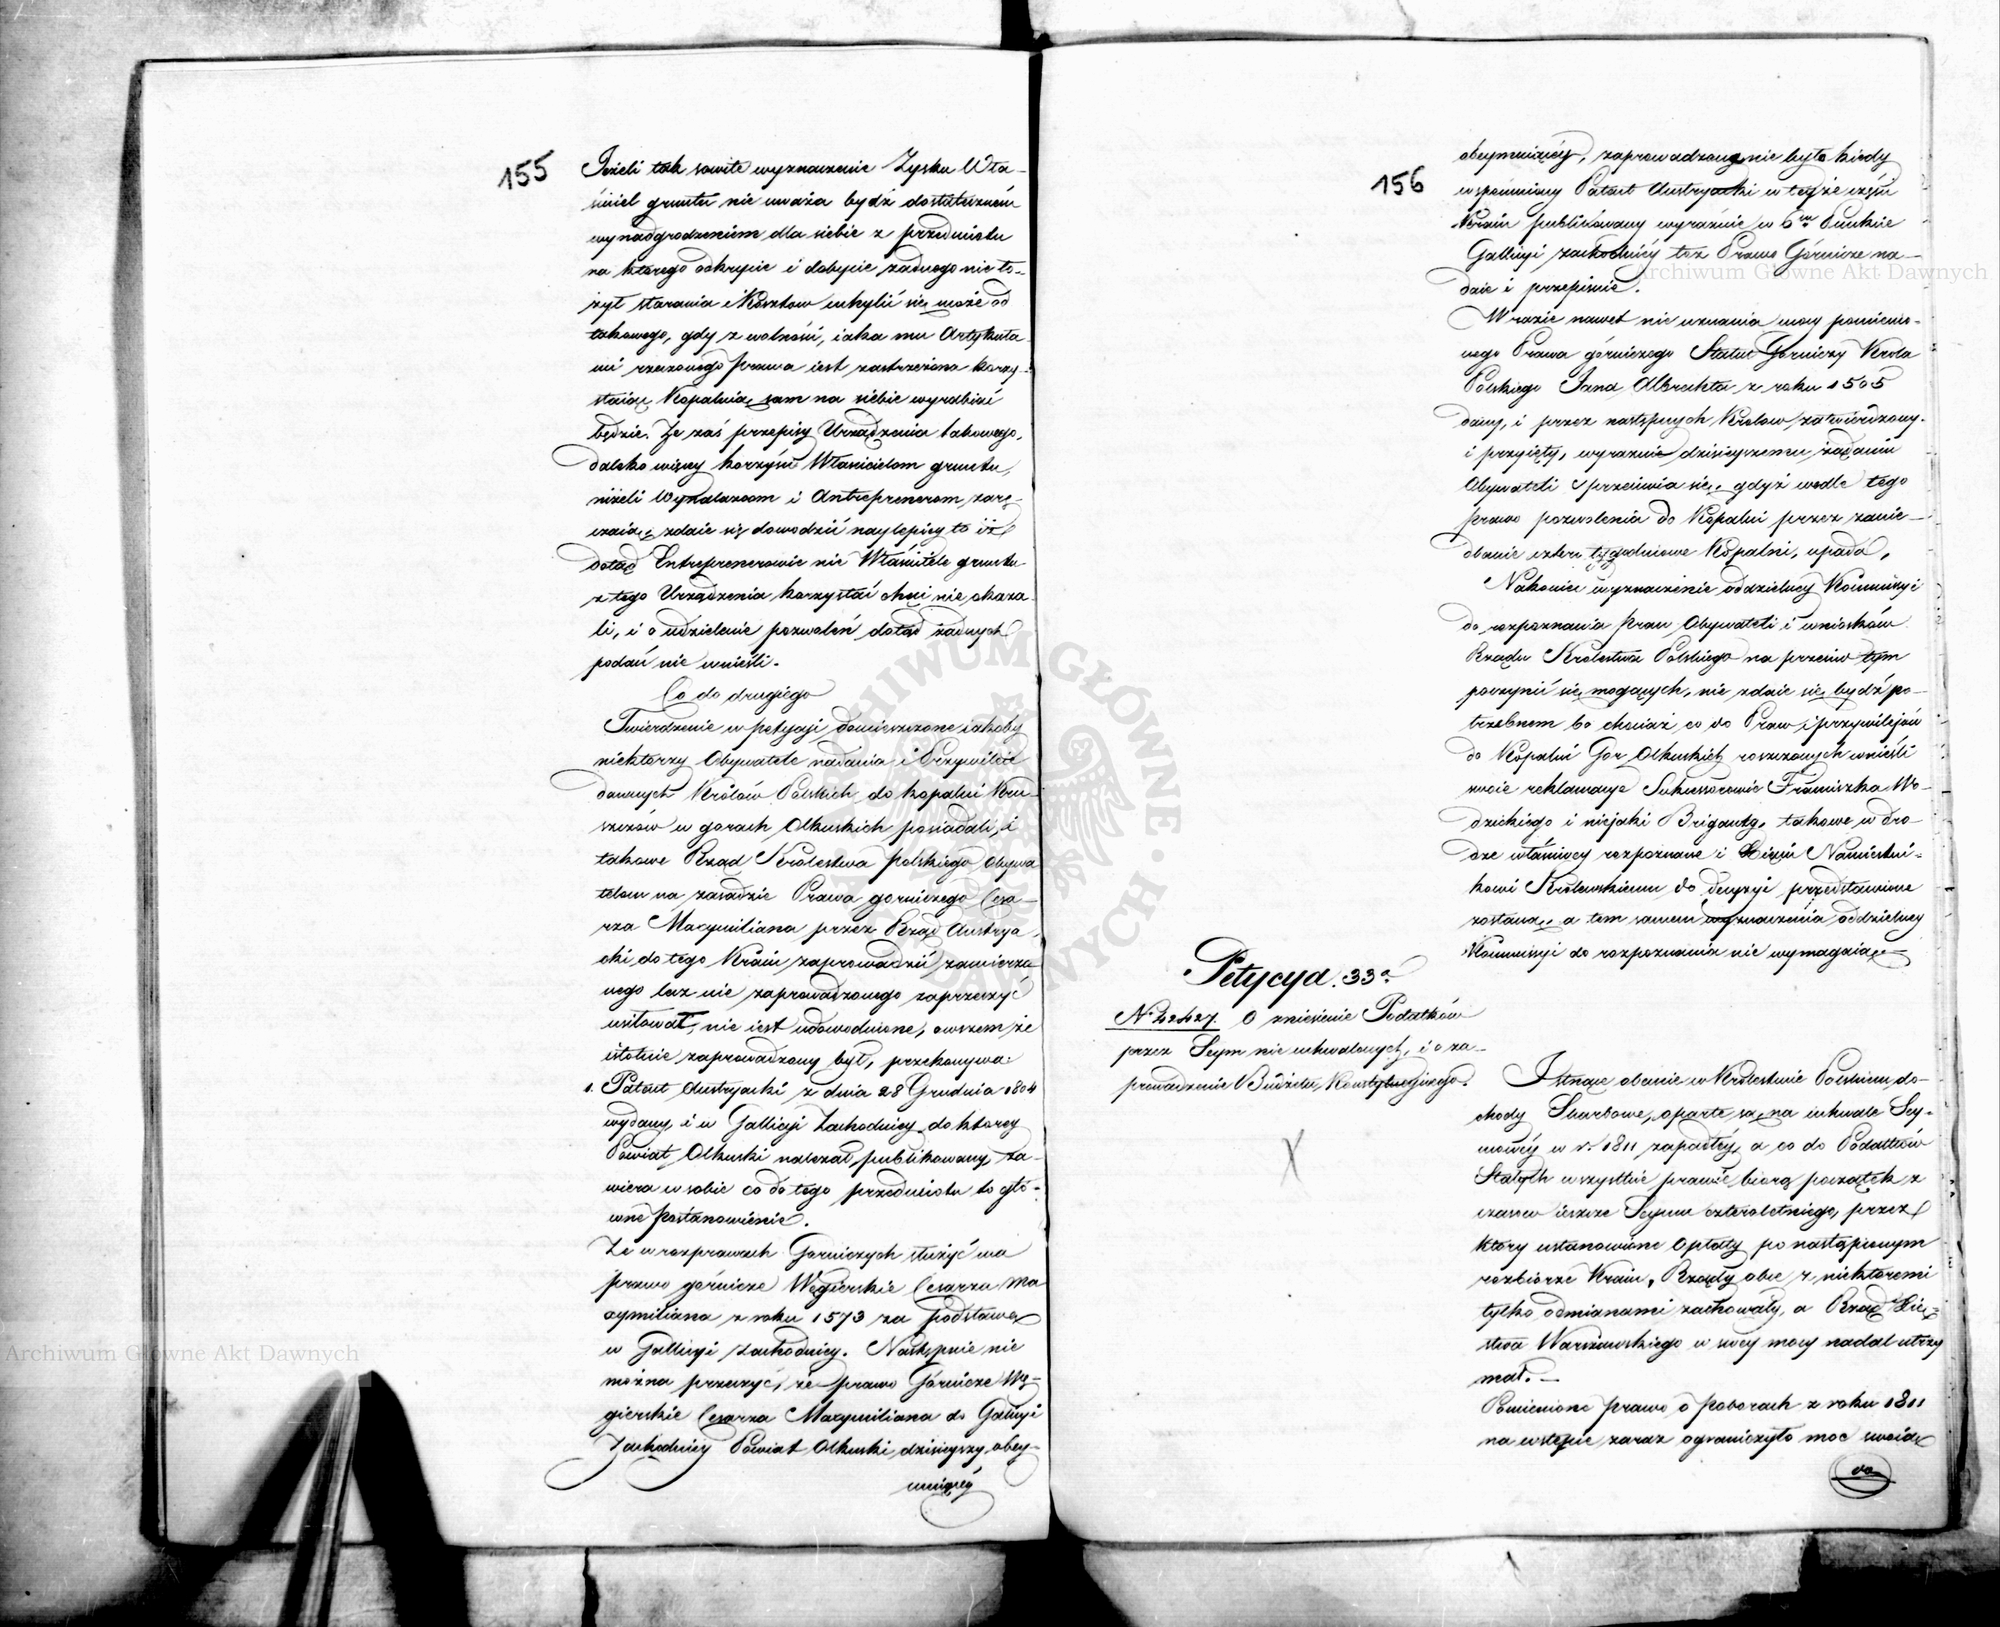 155
Jeżeli tak sowite wyznaczenie Zysku Wła-
ściciel gruntu nie uważa bydź dostateczném
wynadgrodzeniem dla siebie z przedmiotu
na którego odkrycie i dobycie żadnego nie ło-
żył starania i Kosztow uchylić się może od
takowego, gdy z wolności, iaka mu Artykuła-
mi rzeczonego prawa iest zastrzeżona korzy-
staiąc Kopalnią sam na siebie wyrabiać
będzie. Ze zaś przepisy Urządzenia takowego,
daleko więcey korzyści Właścicielom gruntu,
niżeli Wynalazcom i Antreprenerom zarę-
czaią, zdaie się dowodzić naylepiey to iż
dotąd Entreprenerowie nie Właściciele gruntu
z tego Urządzenia korzystać chęci nie okaza-
li, i o udzielenie pozwoleń dotąd żadnych
podań nie wnieśli.
Co do drugiego
Twierdzenie w petycyi domieszczone iakoby
niektorzy Obywatele nadania i Przywileie
dawnych Królów Polskich do kopalni Kru-
szców w gorach Olkuskich posiadali, i
takowe Rząd Królestwa Polskiego Obywa
telom na zasadzie Prawa gorniczego Cesa-
rza Maxymiliana przez Rząd Austrya-
cki do tego Kraiu zaprowadzić zamierza
nego lecz nie zaprowadzonego zaprzeczyć
usiłował, nie iest udowodnione, owszem że
istotnie zaprowadzony był, przekonywa:
1. Patent Austryacki z dnia 28 Grudnia 1804
wydany i w Gallicyi Zachodniey do ktorey
Powiat Olkuski należał publikowany za-
wiera w sobie co do tego przedmiotu to głó-
wne postanowienie.
Ze w rozprawach Gorniczych służyć ma
prawo górnicze Węgierskie Cesarza Ma
xymiliana z roku 1573 za podstawę
w Gallicyi zachodniey. Następnie nie
można przeczyć, że prawo Górnicze Wę-
gierskie Cesarza Maxymiliana do Galicyi
Zachodniey Powiat Olkuski dzisieyszy obey-
muiącéy
156
obeymuiącéy, zaprowadzone nie było kiedy
wspomniony Patent Austryacki w teyże części
Kraiu publikowany wyraźnie w 6m Punkcie
Gallicyi zachodniéy toż Prawo Górnicze na-
daie i przepisuie.
W razie nawet nie uznania mocy pomienio-
nego Prawa górniczego Statut Górniczy Krola
Polskiego Jana Albrechta z roku 1505
dany, i przez następnych Krolow zatwierdzony
i przyięty, wyraźnie dzisieyszemu żądaniu
Obywateli sprzeciwia się, gdyż wedle tego
prawo pozwolenia do Kopalni przez zanie-
dbanie cztero tygodniowe Kopalni, upada,
Nakoniec wyznaczenie oddzielney Kommissyi
do rozpoznania praw Obywateli i wniosków
Rządu Królestwa Polskiego na przeciw tym
poczynić się mogących, nie zdaie się bydź po-
trzebnem bo chociaż co do Praw i przywilejów
do Kopalni Gor Olkuskich roszczonych wnieśli
swoie reklamacye Sukcessorowie Franciszka Wo-
dzickiego i niejaki Brigantzy, takowe w dro-
dze właściwey rozpoznane i Xięciu Namiestni-
kowi Królewskiemu do decyzyi przedstawione
zostaną, a tem samem wyznaczenia oddzielney
Kommissyi do rozpoznania nie wymagaią.
Petycya 33a
O zniesienie Podatków
przez Seym nie uchwalonych, i o za-
prowadzenie Budżetu Konstytucyinego.
Istnące obecnie w Królestwie Polskim do-
chody Skarbowe, oparte są na uchwale Sey-
mowéy w r. 1811 zapadłéy, a co do Podatków
Stałych wszystkie prawie biorą początek z
czasow ieszcze Seymu czteroletniego, przez
który ustanowione Opłaty po nastąpionym
rozbiorze Kraiu, Rządy obce z niektoremi
tylko odmianami zachowały, a Rząd Xię-
stwa Warszawskiego w swey mocy nadal utrzy
mał. -
Pomienione prawo o poborach z roku 1811
na wstępie zaraz ograniczyło moc swoię
do
Archiwum Główne Akt Dawnych
Archiwum Główne Akt Dawnych
ARCHIWUM GŁÓWNE AKT DAWNYCH